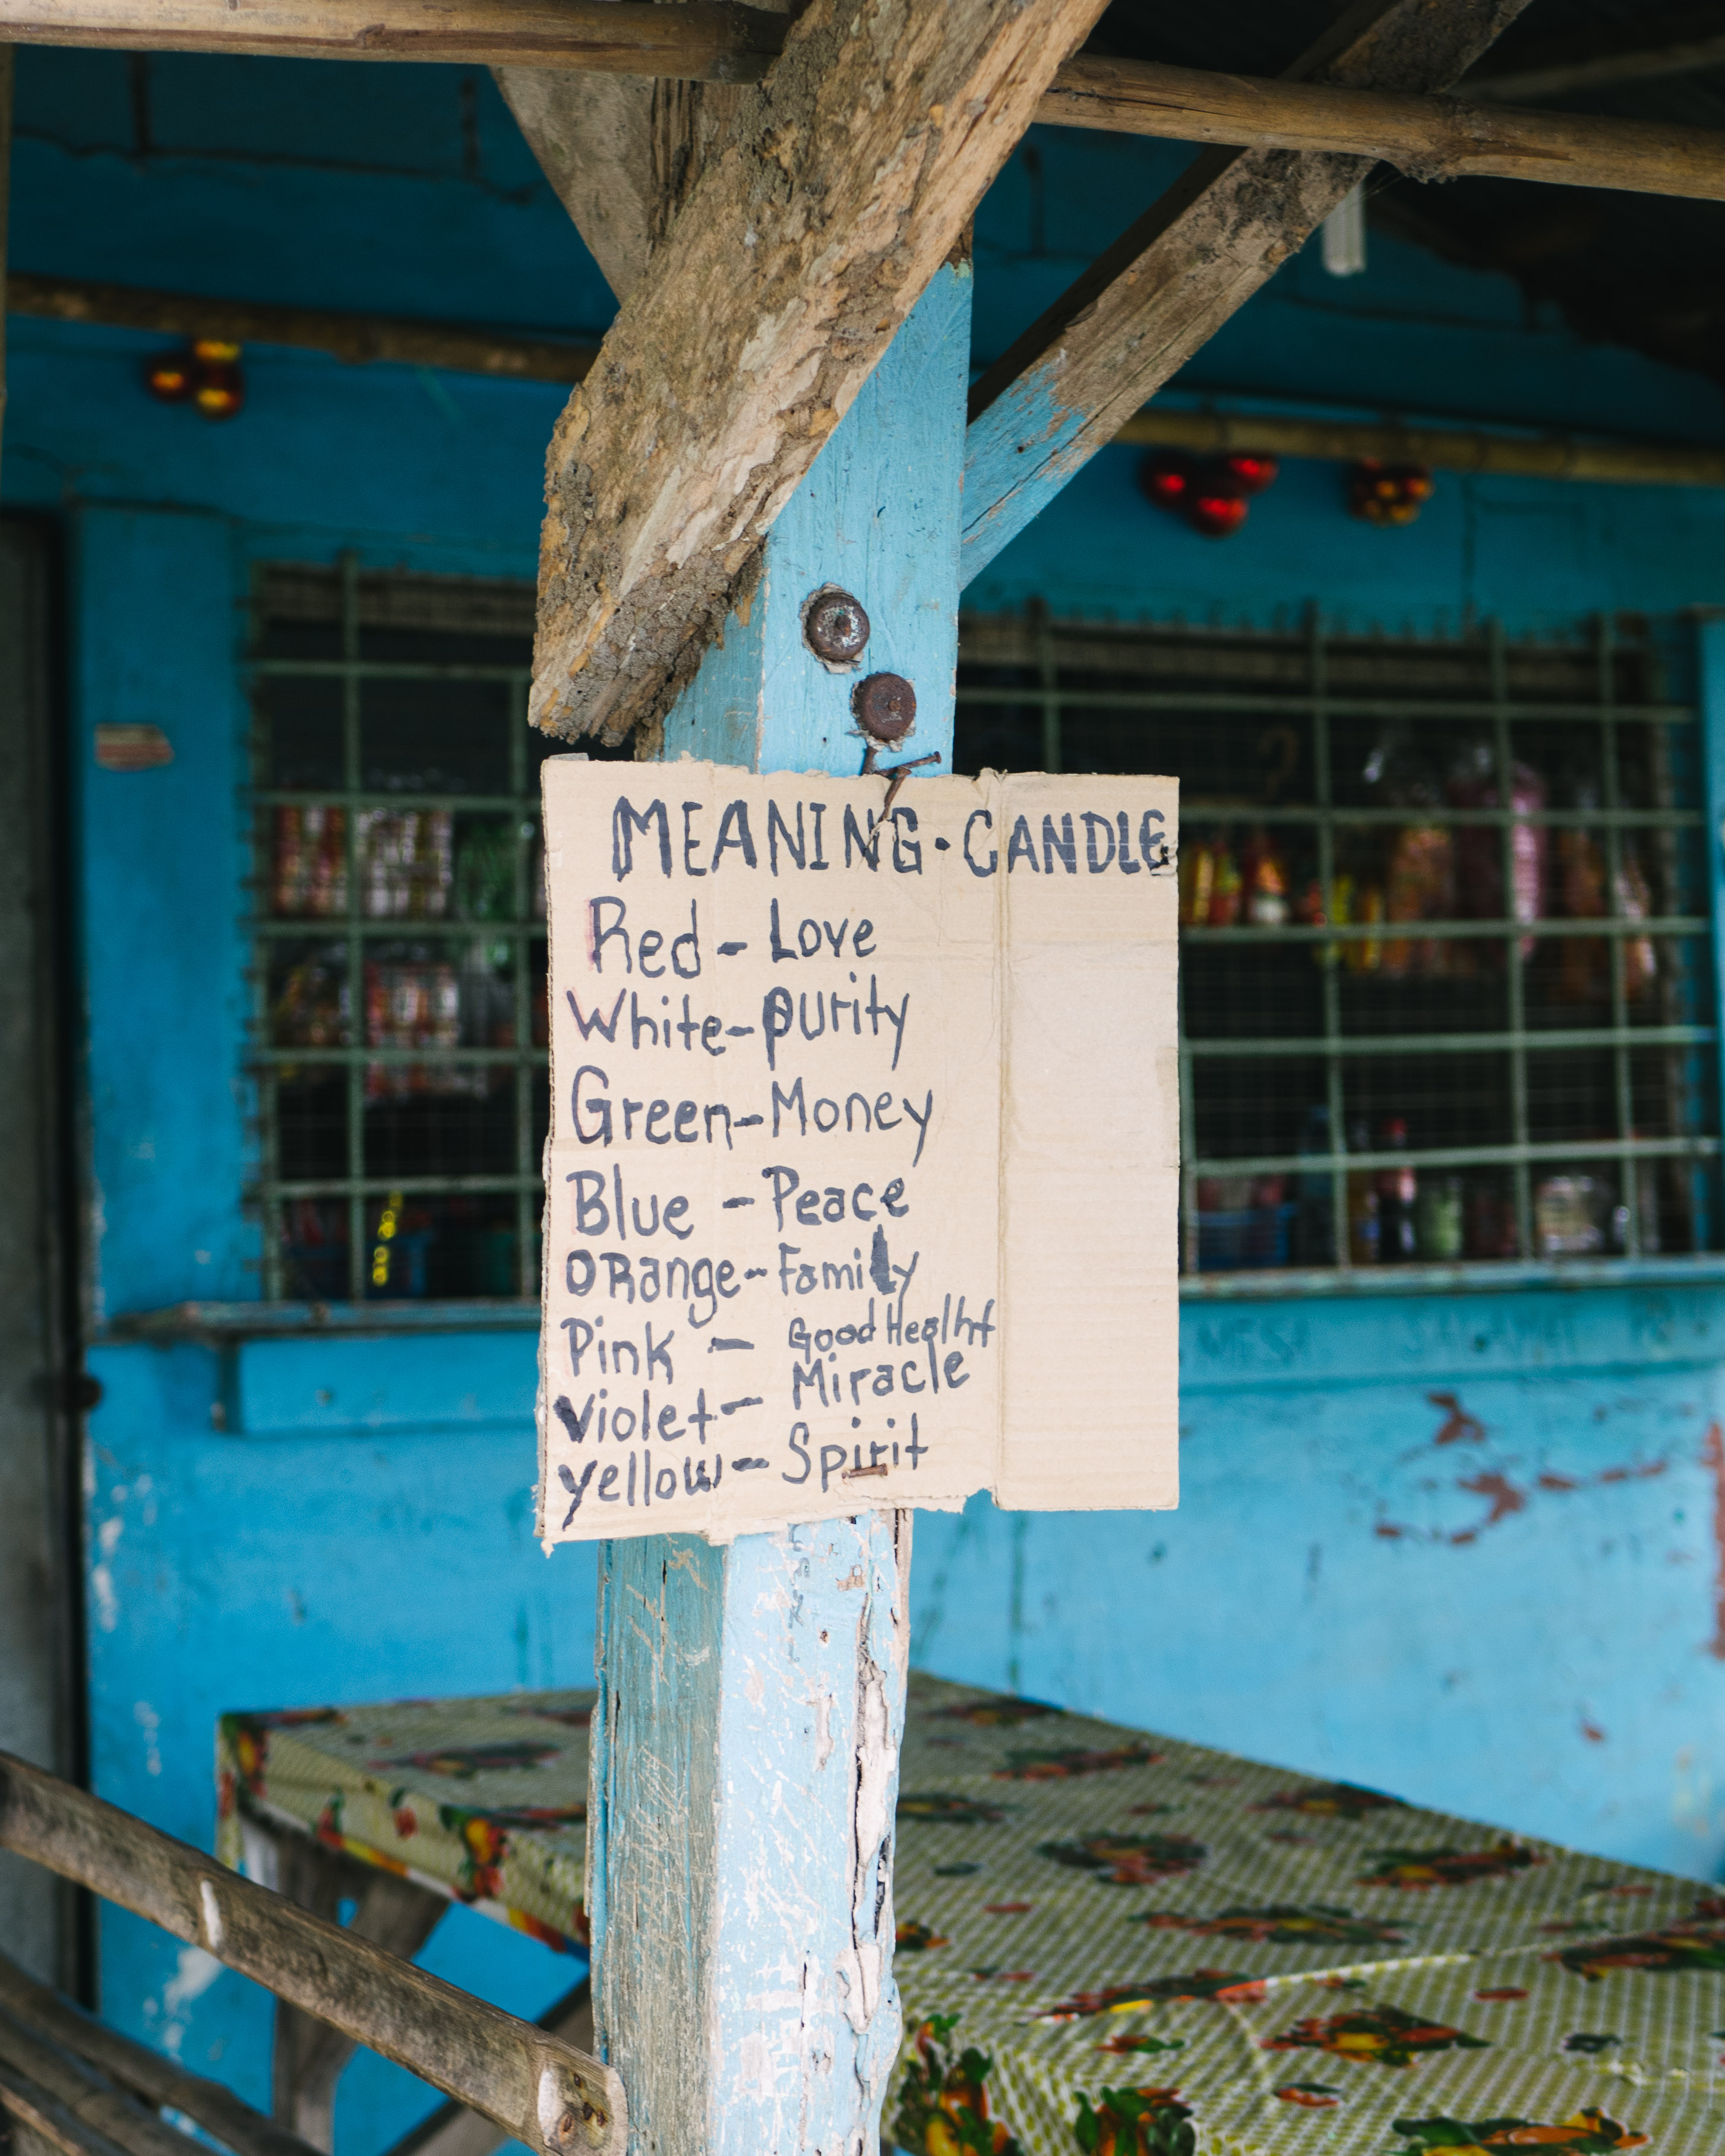 MEANING·CANDLE
Red - Love
White - purity
Green - Money
Blue - Peace
ORange - Family
Pink - Good Healht
Violet - Miracle
yellow - Spirit